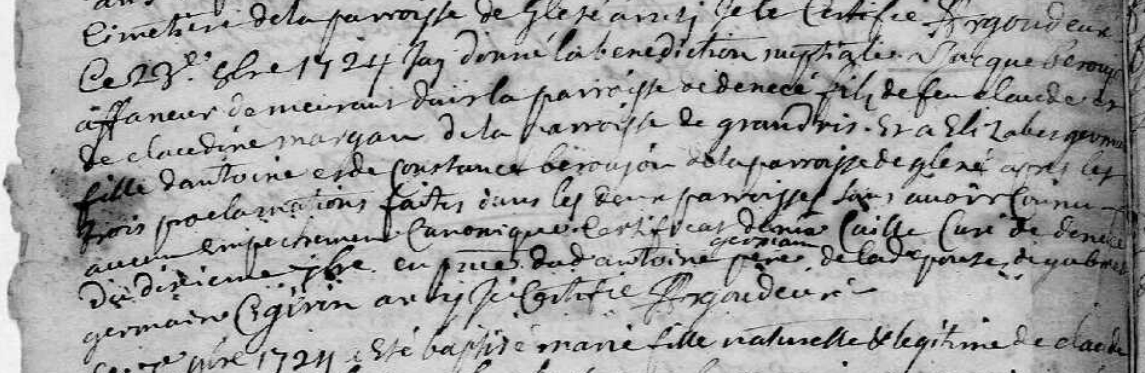 Cimetiere de la parroisse de Glezé je le Certifie
Ce 23e 9bre 1724 Jay donné la benediction nuptiale Jacque
affaneur demeurant dans la parroisse de denecé fils de feu claude et
de claudine margan de la parroisse de grandris. Et a Elizabet
fille dantoine et de constance beroujon de la parroisse de glezé apres les
trois proclamations faites dans les deux parroisses sans avoir Connu
aucun empechement Canonique. Certificat de mr Caille Curé de denecé
du dixieme 9bre en pnce dud antoine germain pere de lad epouse, de gabriel
germain je Certifie
9bre 1724 a Eté baptisé marie fille naturelle & legitime de claude